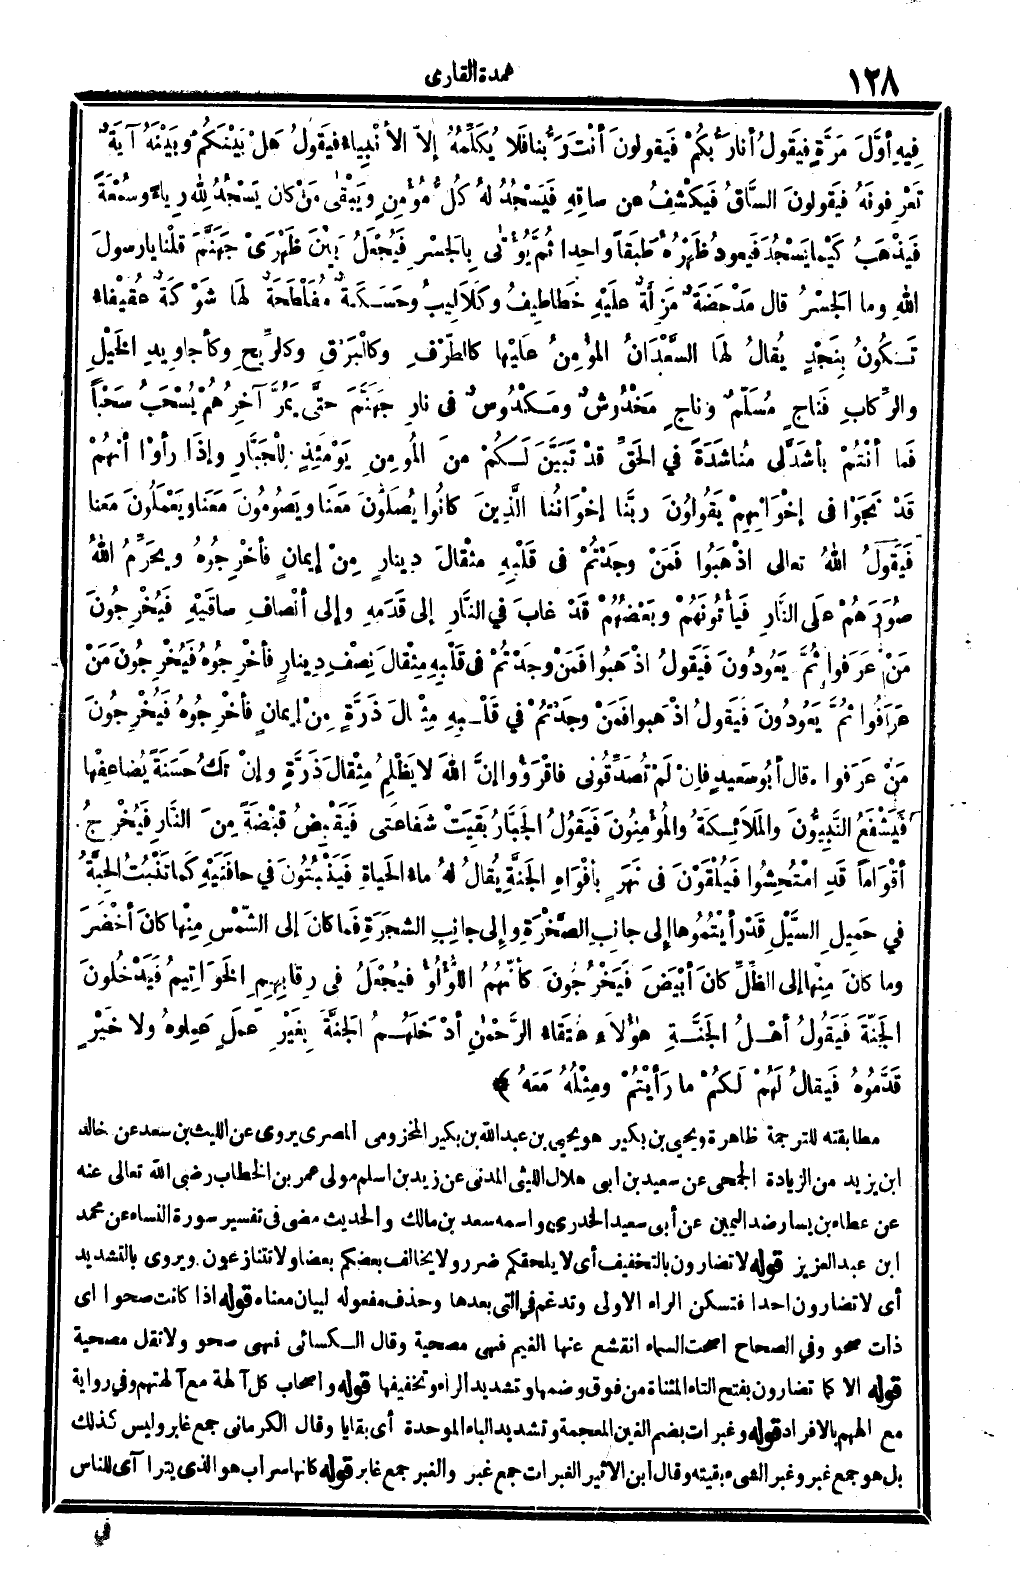 ١٢٨
عمدة القارى
فِيهِ أوَّلَ مَرَّةٍ فيَقُولُ أنا رَبُّكُمْ فَيَقولونَ أنْتَ رَبُّنا فَلا يُكَلِّمُهُ إلاّ الأنْبِياء فيَقُولُ هَلْ بَيْنَكُمْ وبَيْنَهُ آيَةٌ
تَعْرِفونَهُ فيَقولونَ السَّاقُ فَيَكْشِفُ عن ساقِهِ فَيَسْجُدُ لهُ كُلُّ مُؤْمِنٍ ويَبْقٰى مَنْ كان يَسْجُدُ لِلهِ رِياءً وسُمْعَةً
فَيَذْهَبُ كَيْما يَسْجُدَ فَيَعودُ ظَهْرُهُ طَبَقاً واحِدا ثُمَّ يُؤْتٰى بِالجَسْرِ فَيُجْعَلُ بَيْنَ ظَهْرَىْ جَهَنَّمَ قلْنا يارسولَ
اللهِ وما الجَسْرُ قال مَدْحَضَةٌ مَزِلَّةٌ علَيْهِ خَطاطِيفُ وكَلَالِيبُ وحَسَكَةٌ مُفَلْطَحَةٌ لَها شَوْكَةٌ عقَيْفاء
تَكُونُ بِنَجْدٍ يُقالُ لهَا السَّعْدَانُ المؤْمِنُ علَيْها كالطَّرْفِ وكالْبَرْقِ وكالرِّيحِ وكأجاويدِ الخَيْلِ
والرِّكابِ فَناجٍ مُسَلَّمٌ وناجٍ مَخْدُوشٌ ومَكْدُوسٌ فى نارِ جَهَنَّمَ حتَّى يَمُرَّ آخِرُهُمْ يُسْحَبُ سَحْباً
فَما أنْتُمْ بأشَدَّ لى مُناشَدَةً في الحَقِّ قدْ تَبَيَّنَ لَكُمْ منَ المُؤمِنِ يَوْمَئِذٍ لِلْجَبَّارِ وإذَا رأوْا أنَّهُمْ
قَدْ نَجَوْا فى إخْوَانِهِمْ يَقُولُونَ ربَّنا إخْوَانُنا الَّذِينَ كانُوا يُصَلُّونَ مَعَنا ويَصُومُونَ مَعَنا ويَعْمَلُونَ مَعَنا
فَيَقُولُ اللهُ تعالى اذْهَبُوا فَمَنْ وجَدْتُمْ فى قَلْبِهِ مثْقالَ دِينارٍ مِنْ إيمانٍ فأخْرِجُوهُ ويحَرِّمُ اللهُ
صُوَرَهُمْ علَى النَّارِ فَيأْتُونَهُمْ وبَعْضُهُمْ قَدْ غابَ في النَّارِ إلى قَدَمِهِ وإلى أنْصافِ ساقَيْهِ فَيُخْرِجُونَ
مَنْ عَرَفوا ثُمَّ يَعُودُونَ فَيَقولُ اذْهَبُوا فَمَنْ وجَدْتُمْ فى قَلْبِهِ مِثْقالَ نِصْفِ دِينارٍ فأخْرِجُوهُ فَيُخْرِجُونَ مَنْ
عَرَفُوا ثُمَّ يَعُودُونَ فَيقولُ اذْهَبوا فَمَنْ وجَدْتُمْ في قَلْبِهِ مِثْقالَ ذَرَّةٍ مِنْ إيمانٍ فأخْرِجُوهُ فَيُخْرِجُونَ
مَنْ عَرَفوا . قال أبُو سَعِيدٍ فإنْ لَمْ تُصَدِّقُونى فاقْرَؤُا إنَّ اللهَ لا يَظْلِمُ مِثْقالَ ذَرَّةٍ وإنْ تَكُ حَسَنَةً يُضاعِفْها
فَيَشْفَعُ النَّبِيُّونَ والمَلَائِكَةُ والمُؤْمِنُونَ فَيَقُولُ الجَبَّارُ بَقِيَتْ شَفاعَتى فَيَقْبِضُ قَبْضَةً مِنَ النَّارِ فَيُخْرِجُ
أقْوَاماً قَدِ امْتُحِشُوا فَيُلْقَوْنَ فى نَهَرٍ بأفْوَاهِ الجَنَّةِ يُقالُ لهُ ماء الحَياةِ فَيَنْبُتُونَ في حافَتَيْهِ كَما تَنْبُتُ الحِبَّةُ
في حَمِيلِ السَّيْلِ قَدْ رأيْتُمُوها إلى جانِبِ الصَّخْرَةِ وإلى جانِبِ الشَّجَرَةِ فَما كانَ إلى الشَّمْسِ مِنْها كانَ أخْضَرَ
وما كانَ مِنْها إلى الظِّلِّ كانَ أبْيَضَ فَيَخْرُجُونَ كأنَّهُمُ اللُّؤْلُؤُ فيُجْعَلُ فى رِقابِهِمِ الخَوَاتِيمُ فَيَدْخُلُونَ
الجَنَّةَ فَيَقُولُ أهْلُ الجَنَّةِ هٰؤُلاَءِ عُتَقَاءُ الرَّحْمٰنِ أدْخَلَهُمُ الجَنَّةَ بِغَيْرِ عَمَلٍ عَمِلوهُ ولا خَيْرٍ
قَدَّمُوهُ فَيقالُ لَهُمْ لَكُمْ ما رَأيْتُمْ ومِثْلُهُ مَعَهُ ﴾
مطابقته للترجمة ظاهرة ويحيى بن بكير هو يحيى بن عبد الله بن بكير المخزومى المصرى يروى عن الليث بن سعد عن خالد
ابن يزيد من الزيادة الجمحى عن سعيد بن ابى هلال الليثى المدنى عن زيد بن اسلم مولى عمر بن الخطاب رضى الله تعالى عنه
عن عطاء بن يسار ضد اليمين عن أبى سعيد الخدرى واسمه سعد بن مالك والحديث مضى فى تفسير سورة النساء عن محمد
ابن عبد العزيز قوله لا تضارون بالتخفيف أى لا يلحقكم ضرر ولا يخالف بعضكم بعضا ولا تتنازعون ويروى بالتشديد
أى لا تضارون احدا فتسكن الراء الاولى وتدغم في التى بعدها وحذف مفعوله لبيان معناه قوله اذا كانت صحوا اى
ذات صحو وفي الصحاح اصحت السماء انقشع عنها الغيم فهى مصحية وقال الكسائى فهى صحو ولا تقل مصحية
قوله الا كما تضارون بفتح التاء المثناة من فوق وضمها وتشديد الراء وتخفيفها قوله واصحاب كل آلهة مع آلهتهم وفي رواية
مع الههم بالافراد قوله وغبرات بضم الغين المعجمة وتشديد الباء الموحدة أى بقايا وقال الكرمانى جمع غابر وليس كذلك
بل هو جمع غبر وغبر الشىء بقيته وقال ابن الاثير الغبرات جمع غبر والغبر جمع غابر قوله كانها سراب هو الذى يتراآى للناس
في